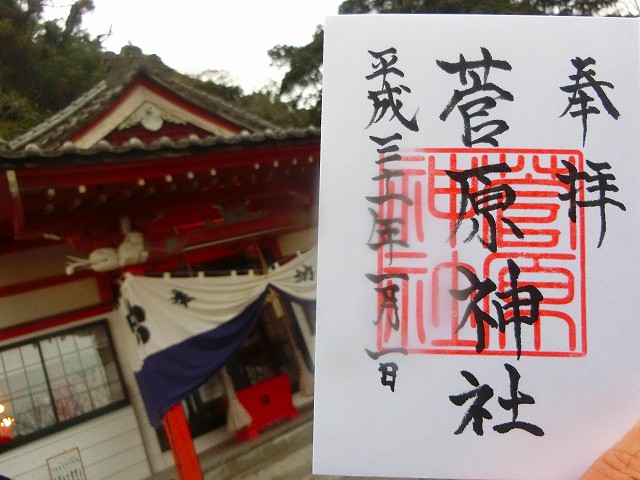 奉拝
菅原神社
平成三十一年一月一日
菅原神社